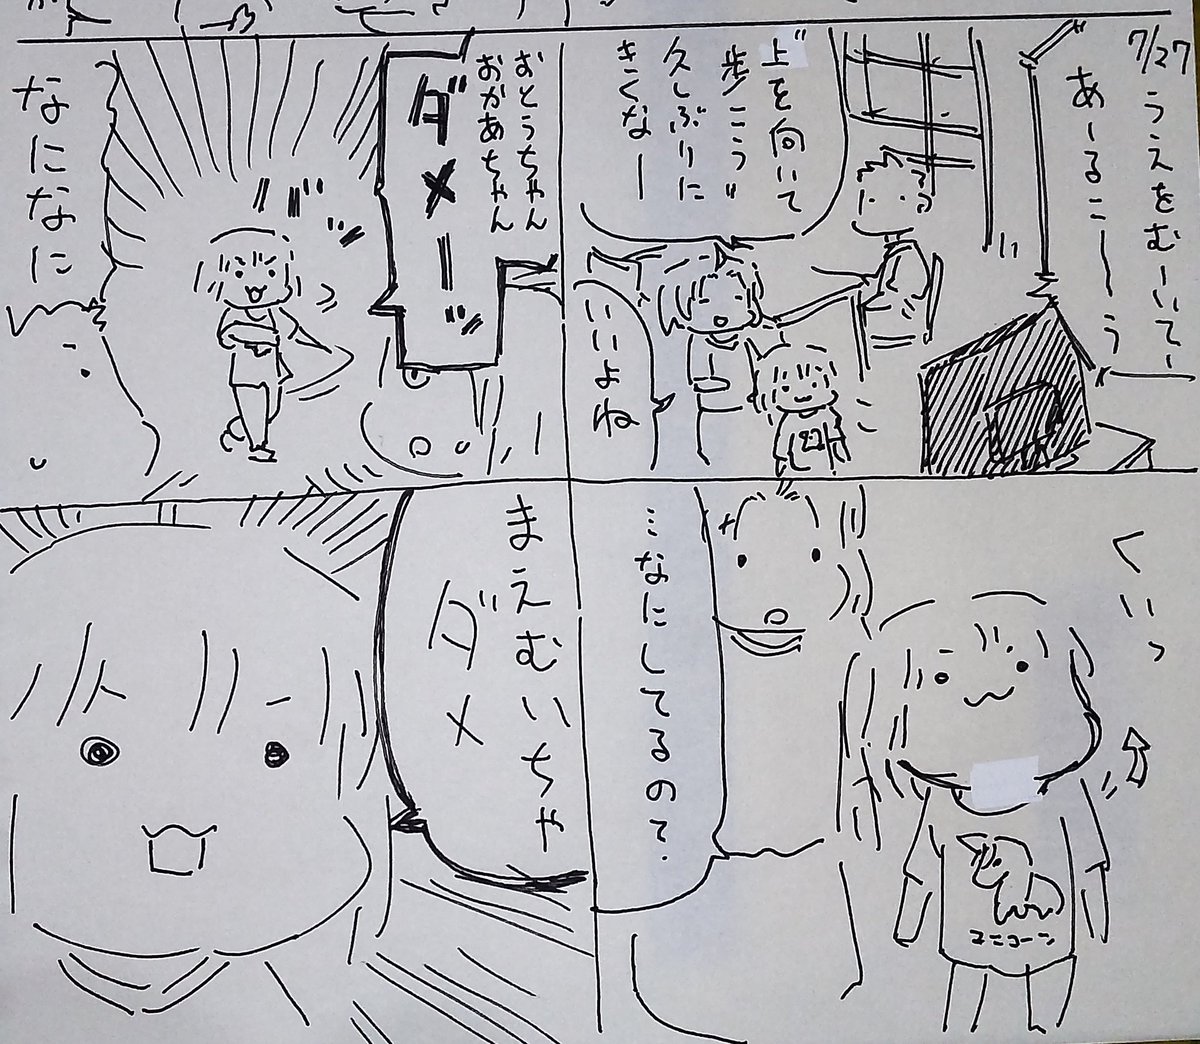 7/27
うえをむーいてー
あーるこーーう
"上を向いて
歩こう"
久しぶりに
きくなー
いいよね
おとうちゃん
おかあちゃん
ダメーッ
バッ
なになに
くいっ
ユニコーン
…なにしてるので.
まえむいちゃ
ダメ